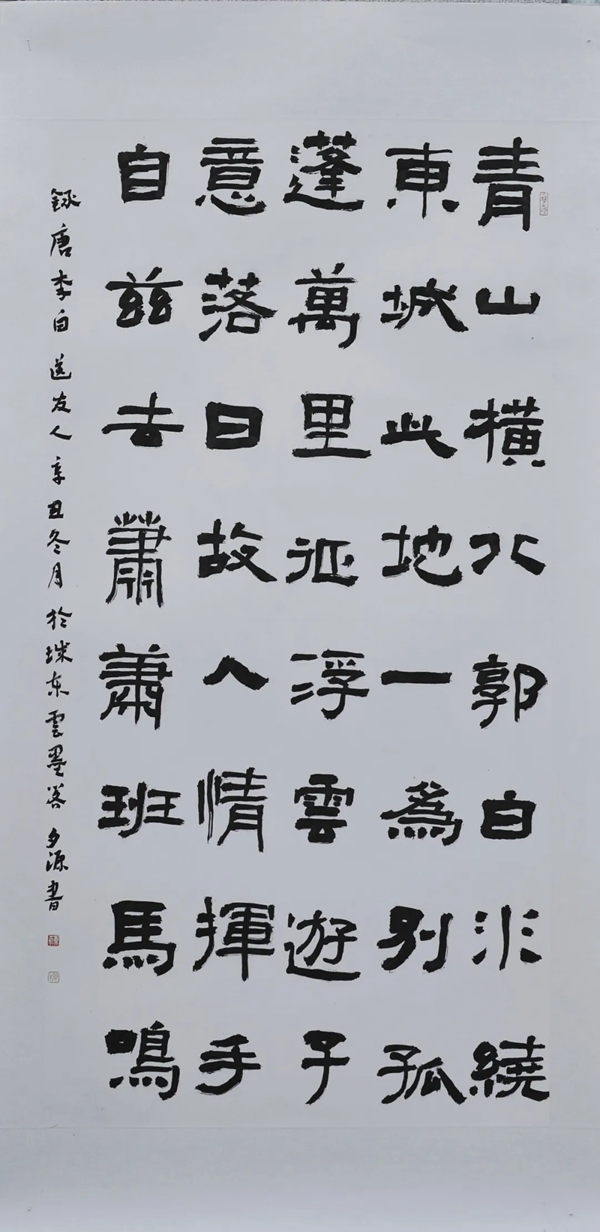 青山橫北郭白水繞
東城此地一為別孤
蓬萬里征浮雲遊子
意落日故人情揮手
自茲去蕭蕭班馬鳴
錄唐李白送友人辛丑冬月於珠東雲墨客多源書